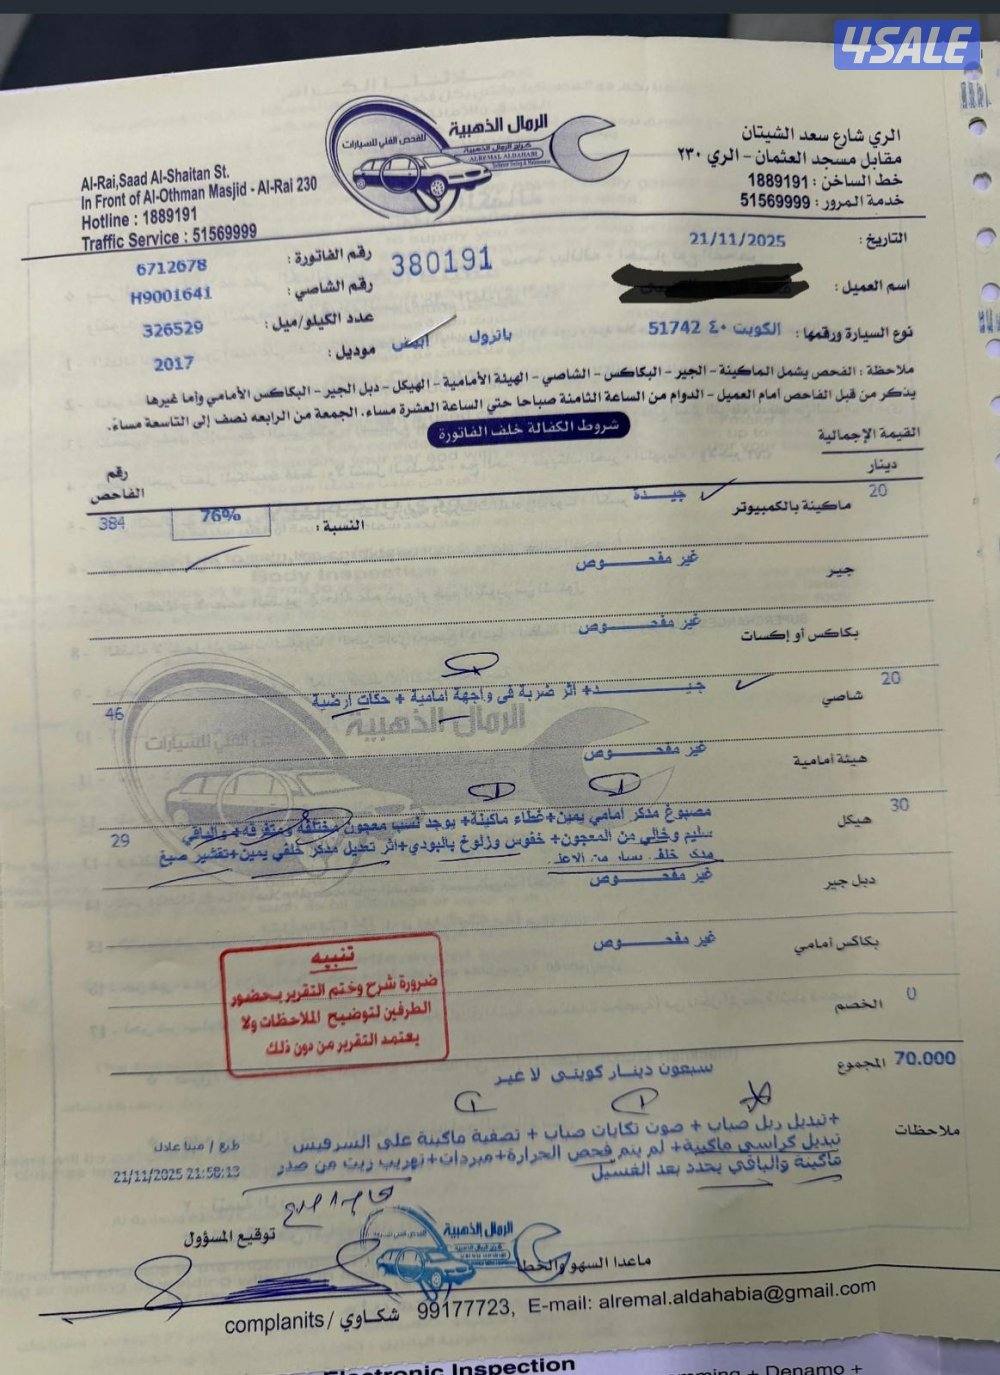 4SALE
الرمال الذهبية
للفحص الفني للسيارات
كراج الرمال الذهبية
ALREMAL ALDAHABI
Al-Rai,Saad Al-Shaitan St.
In Front of Al-Othman Masjid - Al-Rai 230
Hotline : 1889191
Traffic Service : 51569999
الري شارع سعد الشيتان
مقابل مسجد العثمان - الري ٢٣٠
خط الساخن : 1889191
خدمة المرور : 51569999
التاريخ : 21/11/2025
رقم الفاتورة : 6712678
380191
اسم العميل :
رقم الشاصي : H9001641
نوع السيارة ورقمها : الكويت ٤٠ 51742
باترول ابيض
عدد الكيلو/ميل : 326529
موديل : 2017
ملاحظة : الفحص يشمل الماكينة - الجير - البكاكس - الشاصي - الهيئة الأمامية - الهيكل - دبل الجير - البكاكس الأمامي وأما غيرها
يذكر من قبل الفاحص أمام العميل - الدوام من الساعة الثامنة صباحا حتي الساعة العشرة مساء. الجمعة من الرابعه نصف إلى التاسعة مساءً.
شروط الكفالة خلف الفاتورة
القيمة الإجمالية
دينار
رقم الفاحص
20 ماكينة بالكمبيوتر جيدة النسبة : 76% 384
جير غير مفحوص
بكاكس أو إكسات غير مفحوص
20 شاصي جيد+ اثر ضربة في واجهة امامية + حكات ارضية 46
هيئة أمامية غير مفحوص
30 هيكل مصبوغ مدكر امامي يمين+ غطاء ماكينة+ يوجد نسب معجون مختلفة ومتفرقة+ والباقي
سليم وخالي من المعجون+ خفوس وزلوخ بالبودي+اثر تعديل مدكر خلفي يمين+تقشير صبغ 29
مدكر خلفي يسار من الاعلى
دبل جير غير مفحوص
بكاكس أمامي غير مفحوص
تنبيه
ضرورة شرح وختم التقرير بحضور
الطرفين لتوضيح الملاحظات ولا
يعتمد التقرير من دون ذلك
0 الخصم
70.000 المجموع سبعون دينار كويتي لا غير
ملاحظات
+تبديل ربل صباب + صوت تكايات صباب + تصفية ماكينة على السرفيس
تبديل كراسي ماكينة+ لم يتم فحص الحرارة+ مبردات+ تهريب زيت من صدر
ماكينة والباقي يحدد بعد الغسيل
طبع / مينا عادل
21/11/2025 21:58:13
توقيع المسؤول
الرمال الذهبية
ماعدا السهو والخطأ
complanits / شكاوي 99177723, E-mail: alremal.aldahabia@gmail.com
Electronic Inspection
+ Denamo +